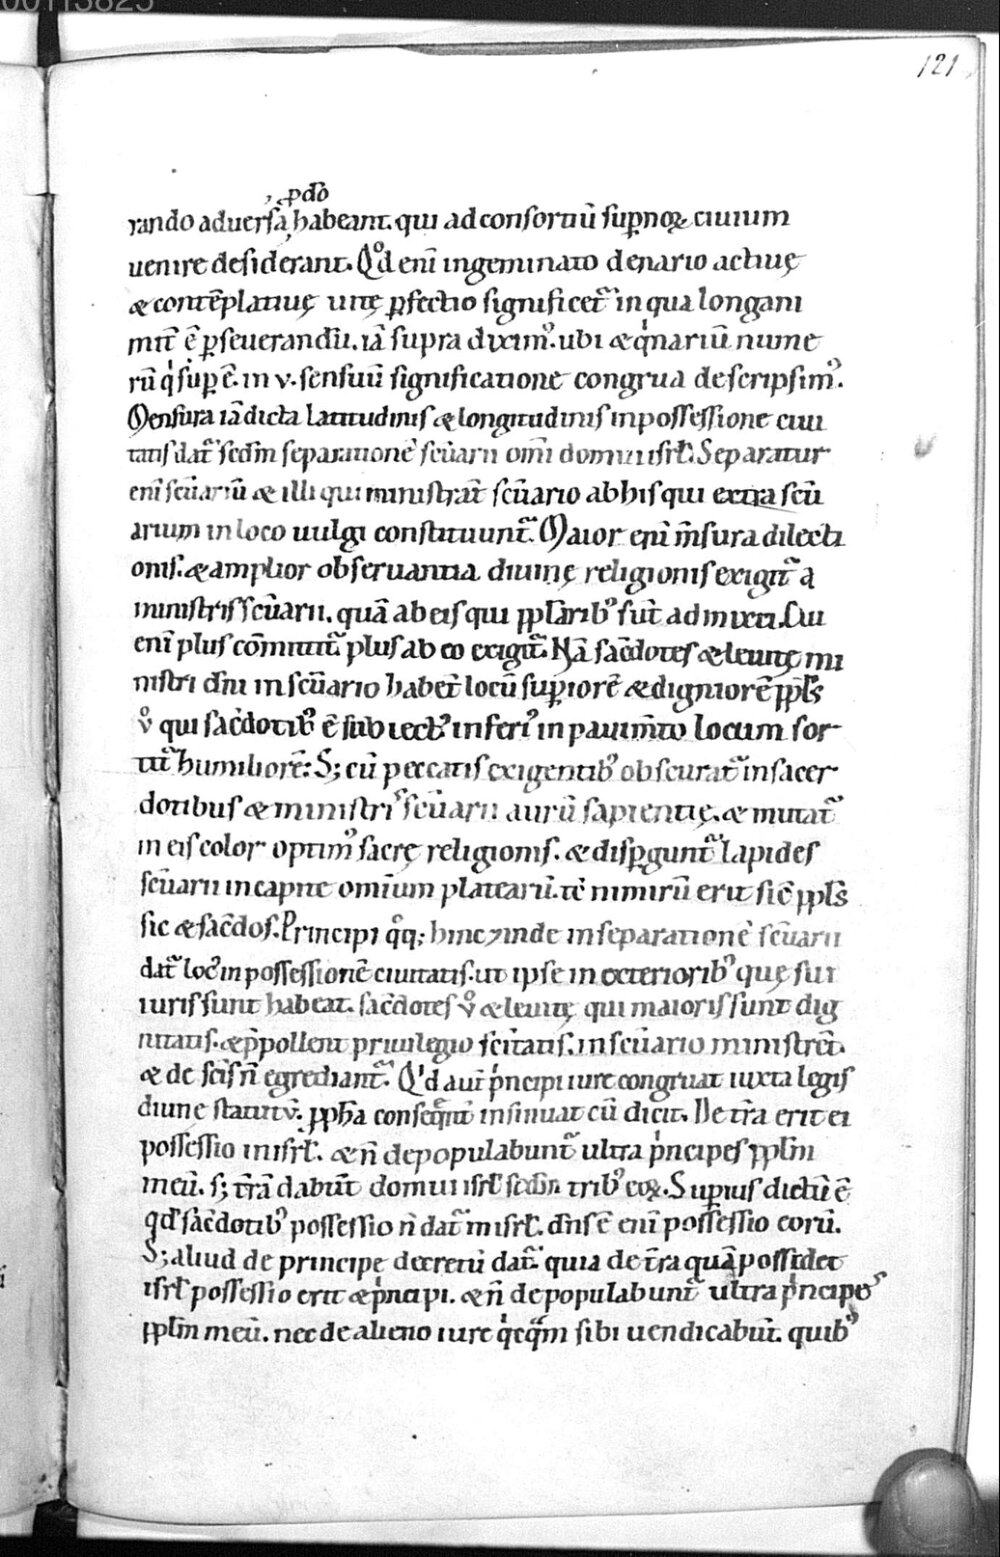 00113825
121
ꝓ dō
rando aduersa, habeant. qui ad consortiū suꝑnoꝝ ciuium
uenire desiderant. Qd enī ingeminato denario actiuę
& contēplatiuę uitę ꝑfectio significet᷑ in qua longani
mit̄ ē ꝑseuerandū. iā supra diximꝰ. ubi & qͥnariū nume
rū qͥ suꝑ ē. in v. sensuū significatione congrua descripsimꝰ.
Mensura iā dicta latitudinis & longitudinis in possessione ciui
tatis dat᷑ scdm separationē scūarii omī domui isrl̄. Separatur
enī scūariū & illi qui ministrāt scūario ab his qui extra scū
arium in loco uulgi constituunt᷑. Maior enī m̄sura dilecti
onis. & amplior obseruantia diuinę religionis exigit᷑ a
ministris scūarii. quā ab eis qui pplaribꝰ sūt admixti. Cui
enī plus cōmittit᷑ plus ab eo exigit᷑. Nā sac̄dotes & leuitę mi
nistri dn̄i in scūario habēt locū suꝑiorē & digniorē ppl̄s
v̊ qui sac̄dotibꝰ ē subiectꝰ inferiꝰ in pauim̄to locum sor
tit᷑ humiliorē: S; cū peccatis exigentibꝰ obscurat᷑ in sacer
dotibus & ministris scūarii aurū sapientię. & mutat᷑
in eis color optimꝰ sacrę religionis. & disꝑgunt᷑ lapides
scūarii in capite omīum platearū. tē nimirū erit sic̄ ppl̄s
sic & sac̄dos. Principi qͦq; hinc ⁊ inde in separationē scūarii
dat᷑ locꝰ in possessionē ciuitatis. ut ipse in exterioribꝰ quę sui
iuris sunt habeat. sac̄dotes v̊ & leuitę qui maioris sunt dig
nitatis. & p̄pollent priuilegio sc̄itatis. in scūario ministrēt.
& de sc̄is n̄ egrediant᷑. Qd aut̄ pͥncipi iure congruat iuxta legis
diuine statutū. ppha conseqͣnt̄ insinuat cū dicit. De t̄ra erit ei
possessio in isrl̄. & n̄ depopulabunt᷑ ultra pͥncipes pplm̄
meū. s; t̄rā dabūt domui isrl̄ scdm tribꝰ eoꝝ. Superius dictū ē
qd sac̄dotibꝰ possessio n̄ dat᷑ in isrl̄. dn̄s ē enī possessio eorū.
S; aliud de principe decretū dat᷑. quia de t̄ra quā possidet
isrl̄ possessio erit & pͥncipi. & n̄ depopulabunt᷑ ultra pͥncipes
pplm̄ meū. nec de alieno iure qͥcqͣm sibi uendicabūt. quibꝰ